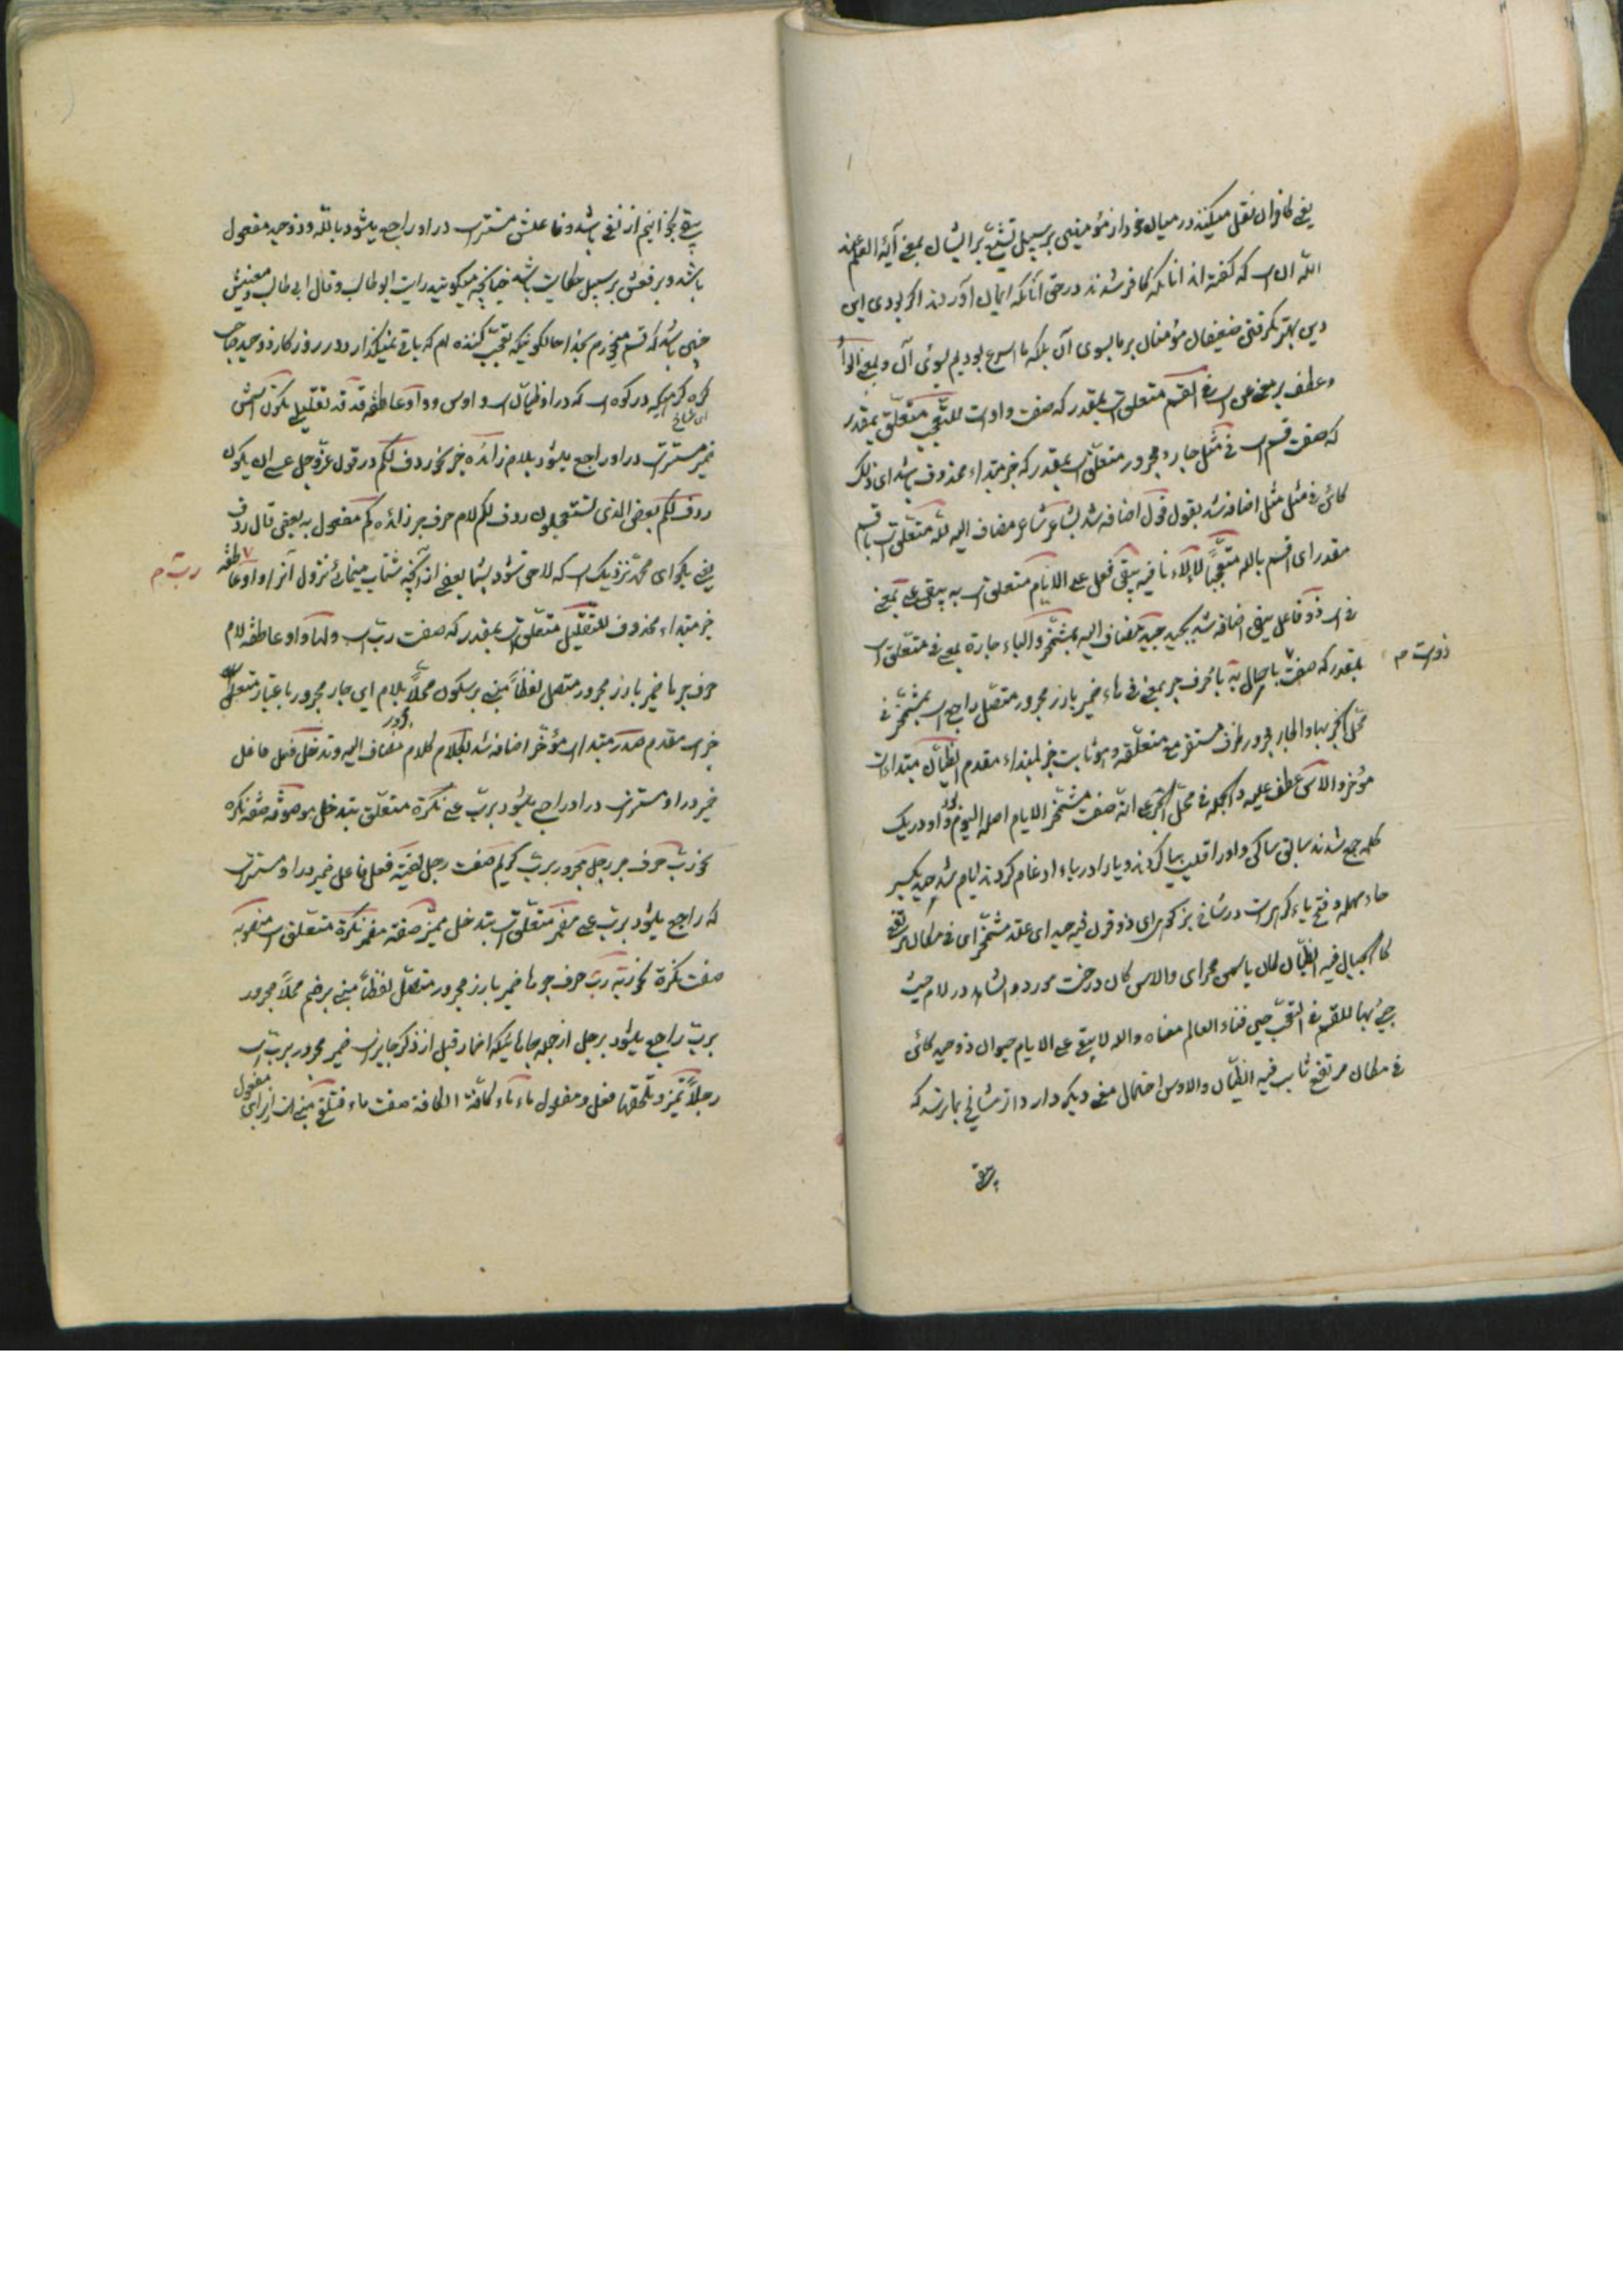 یعنی کافران نقل میکنند در میان خود از مؤمنین بر سبیل تشنیع بر ایشان بمعنی آیة العلم عند
الله ان است که گفته اند انانکه کافر شدند در حق آنانکه ایمان آوردند اگر بودی این
دین بهتر نگرفتنی ضعیفان مؤمنان بر ما بسوی آن بلکه ما اسرع بودیم بسوئ آن وبمعنی الواو
وعطف بر معنی عن است فی القسم متعلق است بمقدر که صفت واو است للتعجب متعلق بمقدر
که صفت قسم است فی مثل جار ومجرور متعلق است بمقدر که خبر مبتداء محذوف باشد ای ذلک
کائن فی مثل مثل اضافه شد بقول قول اضافه شد بشاعر شاعر مضاف الیه لله متعلق است باقسم
مقدر ای اقسم بالله متعجبا لا لاء نافیه یبقی فعل علی الایام متعلق است به یبقی علی بمعنی
فی است ذو فاعل یبقی اضافه شد بحید حید مضاف الیه بمشمخر والباء جارة بمعنی فی متعلق است
بمقدر که صفت یا حال به با حرف جر بمعنی فی هاء ضمیر بارز مجرور متصل راجع است بمشمخر فی
ذو است م
محل الجر بهاء والجار مجرور ظرف مستقر مع متعلقه وهو ثابت خبر لمبتداء مقدم الظیان مبتداء است
مؤخر والآس عطف علیه والجمله فی محل الجر علی انه صفت مشمخر الایام اصله الیوم واو در یک
کلمه جمع شدند سابق ساکن واو را قلب بیا کردند ویا را در یاء ادغام کردند ایام شد حید بکسر
حاء مهمله وفتح یاء گره است در شاخ بز کوهی ای ذو قرن فیه حید ای عقد مشمخر ای فی مکان مرتفع
کالجبال فیه الظیان کان یاسمین صحرای والاس کان درخت مورد والشاهد در لام حیث
جئ بها للقسم فی التعجب حین فناء العالم معناه والله لا یبقی علی الایام حیوان ذو حید کائن
فی مکان مرتفع ثابت فیه الظیان والاوس احتمال معنی دیگر دارد از مشایخ بما رسد که
یبقی
یبقی بخدا نیم از نفی باشد وفاعلش مستتر است در او راجع میشود بالله وذو حید مفعول
باشد وبر فعش بر سبیل حکایت باشد چنانچه میگویند رایت ابو طالب وقال ابی طالب ومعنیش
چنین باشد که قسم میخورم بخدا حالکونیکه تعجب کننده ام که باقی نمیگذارد در روزگار ذو حید صاحب
گره که در کوه است که در او ظیان است واوس وواو عاطفه قد قد تقلیلی تکون اسمش
ای شاخ
ضمیر مستتر است در او راجع میشود بلام زائده خبر نحو ردف لکم در قول عز وجل عسی ان یکون
ردف لکم بعض الذی تستعجلون ردف لکم لام حرف جر زائده کم مفعول به یعنی قال ردف
یعنی بگو ای محمد نزدیک است که لاحق شود بشما بعض از آنچه شتاب مینمائید نزول آنرا واو عاطفه
رب م
خبر مبتداء محذوف للتقلیل متعلق است بمقدر که صفت رب است ولها واو عاطفه لام
حرف جر ها ضمیر بارز مجرور متصل لفظا مبنی بر سکون محلا بلام ای جار مجرور باعتبار متعلق
مجرور
خبر است مقدم صدر مبتداء است مؤخر اضافه شد بکلام کلام مضاف الیه وتدخل فعل فاعل
ضمیر در او مستتر است در او راجع میشود برب علی نکرة متعلق بتدخل موصوفة صفة نکره
نحو رب حرف جر رجل مجرور برب کریم صفت رجل لقیته فعل فاعل ضمیر در او مستتر است
که راجع میشود برب علی مضمر متعلق است بتدخل ممیز صفة مضمر نکرة متعلق است منصوبة
صفت نکرة نحو ربه رب حرف جر ها ضمیر بارز مجرور متصل لفظا مبنی بر ضم محلا مجرور
برب راجع میشود برجل از جمله جاهائیکه اضمار قبل از ذکر جایز است ضمیر مجرور برب است
رجلا تمیز وتلحقها فعل ومفعول ماء ماء کافة الکافة صفت ماء فتلغی مبنی است از برای مفعول